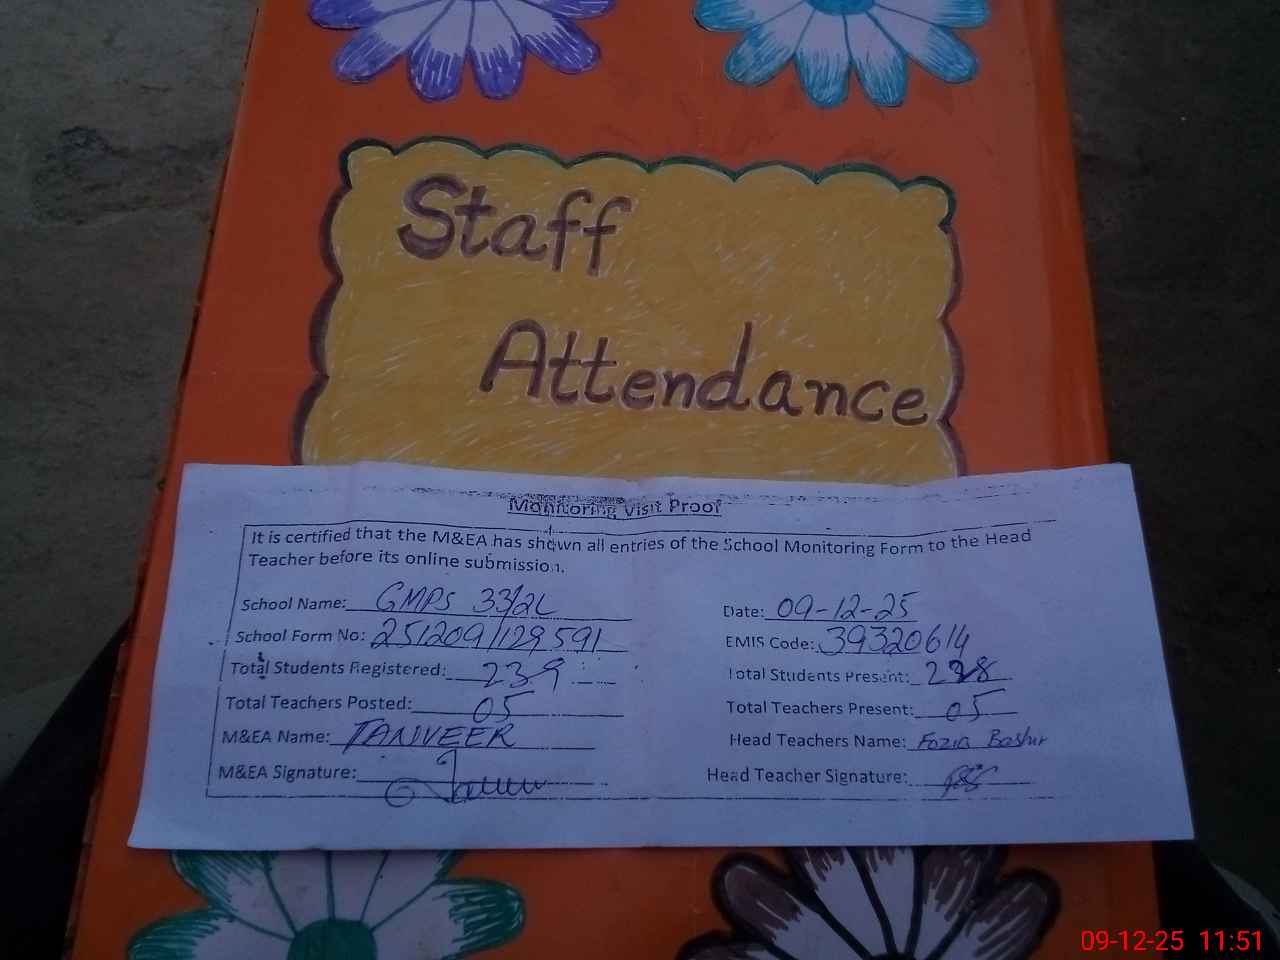 Staff
Attendance
Monitoring Visit Proof
It is certified that the M&EA has shown all entries of the School Monitoring Form to the Head
Teacher before its online submission.
School Name: GMPS 33/2L
Date: 09-12-25
School Form No: 251209/129591
EMIS Code: 39320614
Total Students Registered: 239
Total Students Present:
Total Teachers Posted: 05
Total Teachers Present: 05
M&EA Name: TANVEER
Head Teachers Name: Fozia Bashir
M&EA Signature:
Head Teacher Signature:
09-12-25 11:51